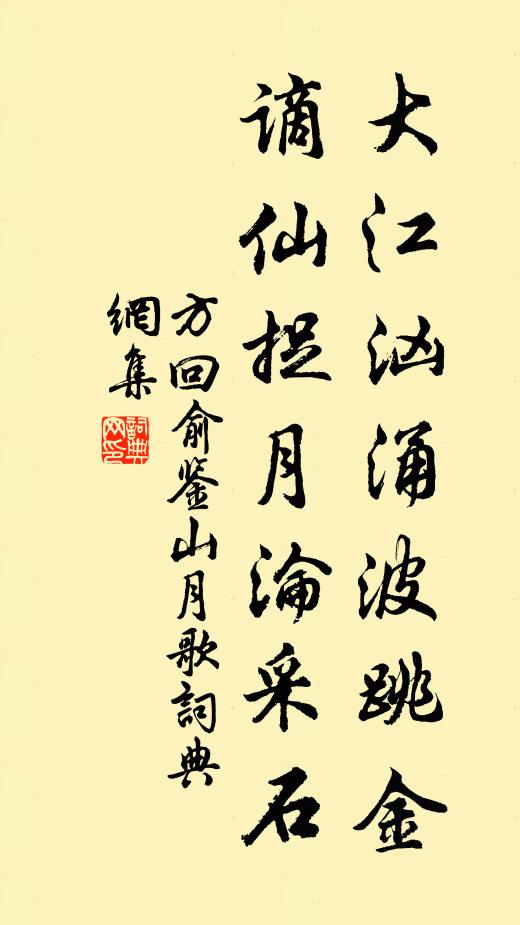 大江汹涌波跳金
谪仙捉月淪采石
方回俞鉴山月歌詞典
網集
詞典
网印